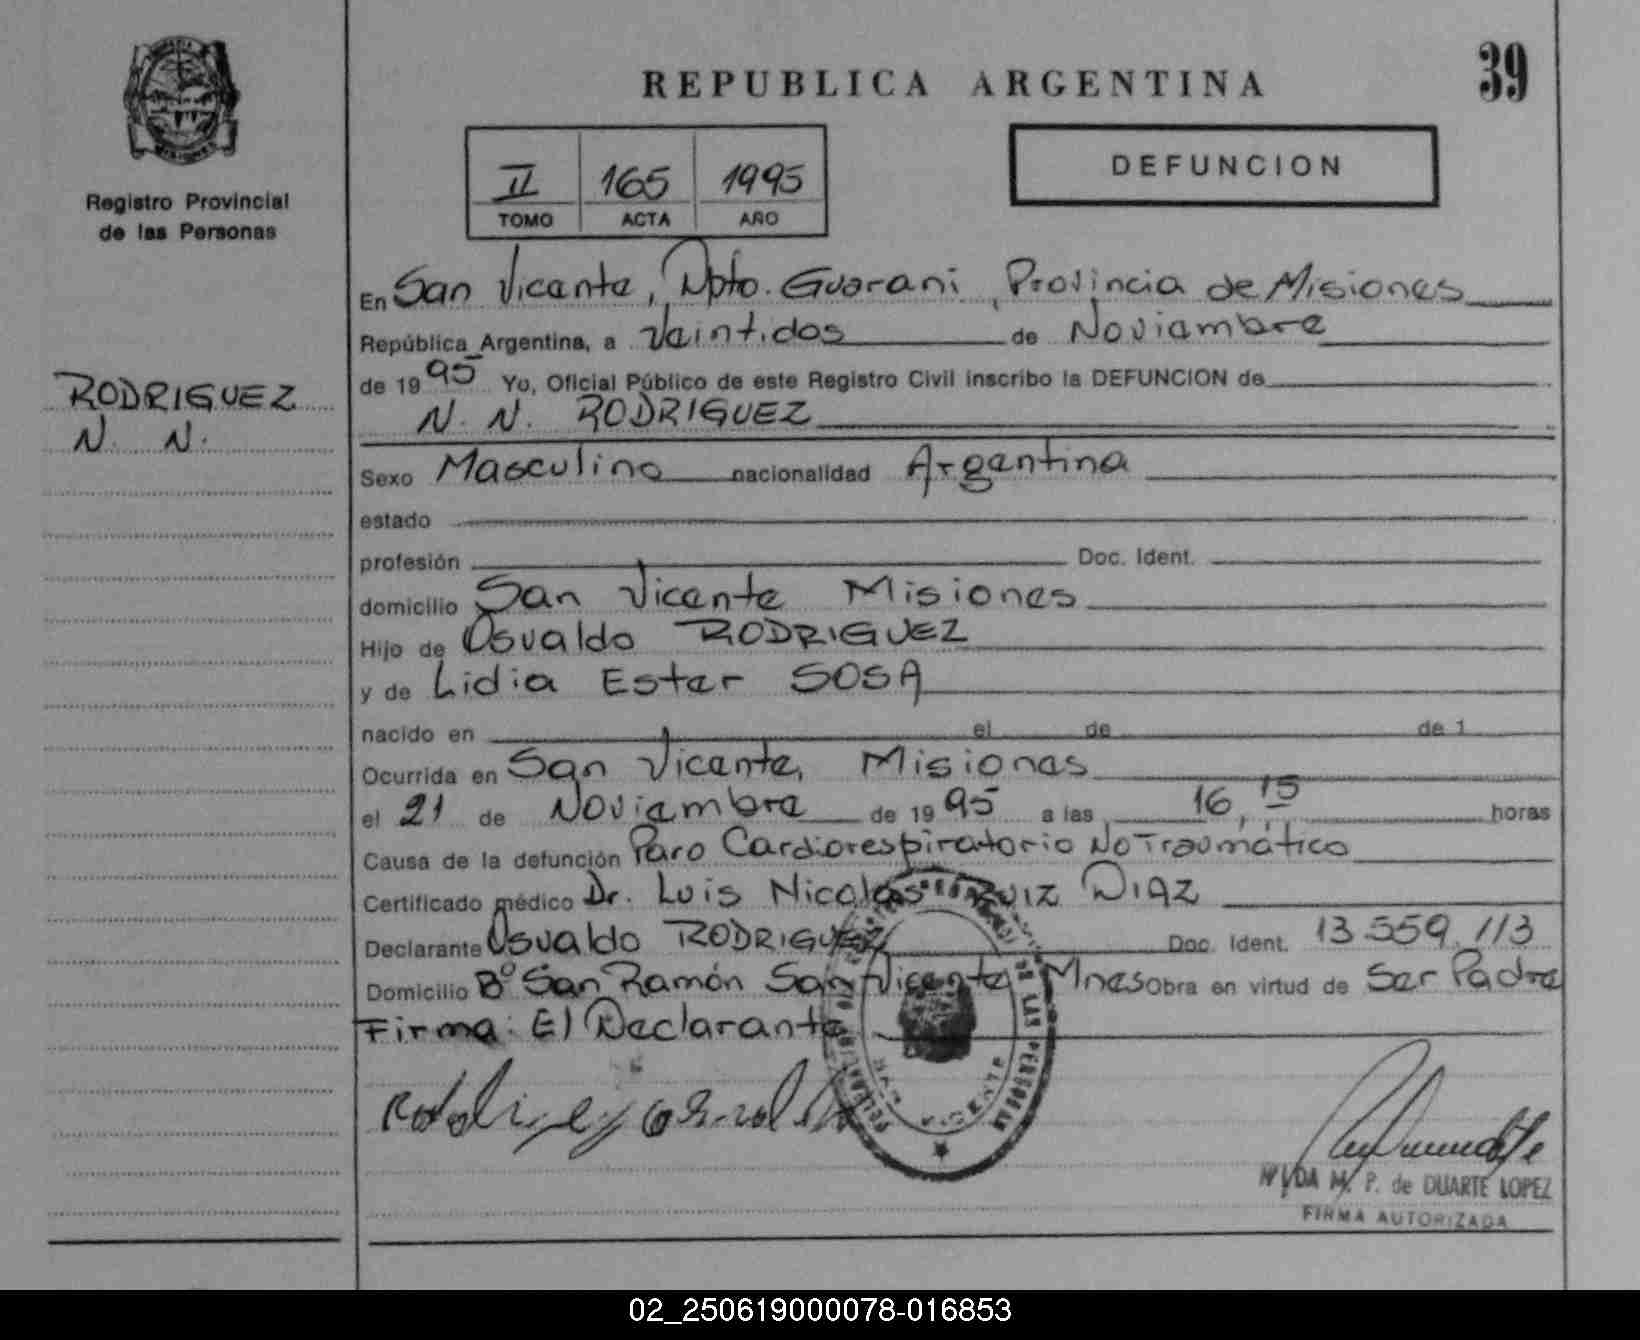 REPUBLICA ARGENTINA
39
MISIONES
Registro Provincial
de las Personas
II 165 1995
TOMO ACTA AÑO
DEFUNCION
RODRIGUEZ
N. N.
En San Vicente, Dpto. Guarani, Provincia de Misiones
República Argentina, a Veintidos de Noviembre
de 1995 Yo, Oficial Público de este Registro Civil inscribo la DEFUNCION de
N. N. RODRIGUEZ
Sexo Masculino nacionalidad Argentina
estado
profesión Doc. Ident.
domicilio San Vicente Misiones
Hijo de Osvaldo RODRIGUEZ
y de Lidia Ester SOSA
nacido en el de de 1
Ocurrida en San Vicente, Misiones
el 21 de Noviembre de 1995 a las 16,15 horas
Causa de la defunción Paro Cardiorespiratorio No Traumático
Certificado médico Dr. Luis Nicolás RUIZ DIAZ
Declarante Osvaldo RODRIGUEZ Doc. Ident. 13.559.113
Domicilio Bº San Ramón San Vicente Mnes Obra en virtud de Ser Padre
Firma: El Declarante
DE LAS PERSONAS
SAN VICENTE
M. P. de DUARTE LOPEZ
FIRMA AUTORIZADA
02_250619000078-016853